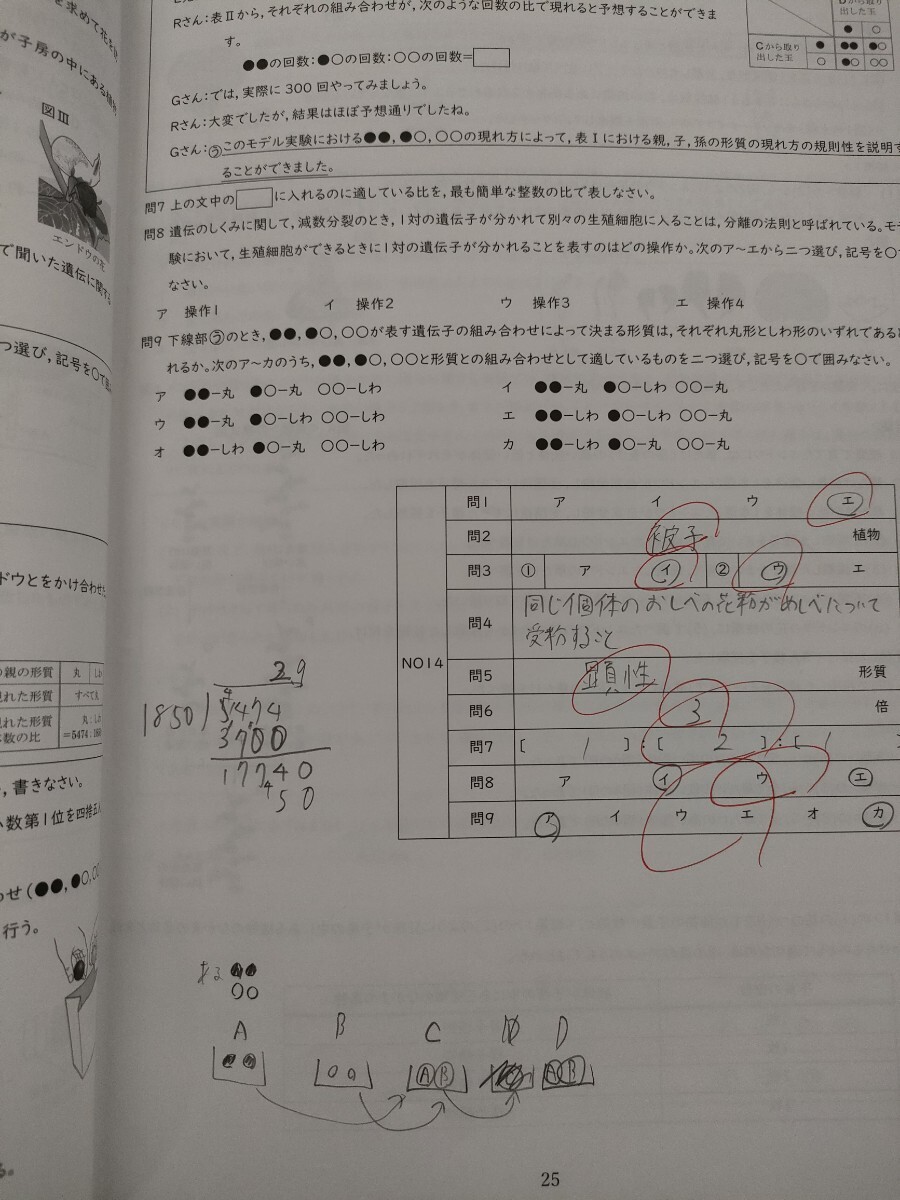 を求めて花を
が子房の中にある
図Ⅲ
エンドウの花
で聞いた遺伝に関する
つ選び,記号を○で
ドウとをかけ合わせた
の親の形質 丸
現れた形質 すべて丸
現れた形質 丸:し
本数の比 =5474:
,書きなさい。
小数第1位を四捨五
わせ(●●,●○,○○
行う。
Rさん:表Ⅱから,それぞれの組み合わせが,次のような回数の比で現れると予想することができま
す。
●●の回数:●○の回数:○○の回数=
Dから取り
出した玉
● ○
Cから取り
出した玉
● ●● ●○
○ ●○ ○○
Gさん:では,実際に300回やってみましょう。
Rさん:大変でしたが,結果はほぼ予想通りでしたね。
Gさん:㋒このモデル実験における●●,●○,○○の現れ方によって,表Ⅰにおける親,子,孫の形質の現れ方の規則性を説明す
ることができました。
問7 上の文中の に入れるのに適している比を,最も簡単な整数の比で表しなさい。
問8 遺伝のしくみに関して,減数分裂のとき,1対の遺伝子が分かれて別々の生殖細胞に入ることは,分離の法則と呼ばれている。モデ
験において,生殖細胞ができるときに1対の遺伝子が分かれることを表すのはどの操作か。次のア~エから二つ選び,記号を○で
なさい。
ア 操作1 イ 操作2 ウ 操作3 エ 操作4
問9 下線部㋒のとき,●●,●○,○○が表す遺伝子の組み合わせによって決まる形質は,それぞれ丸形としわ形のいずれであると
れるか。次のア~カのうち,●●,●○,○○と形質との組み合わせとして適しているものを二つ選び,記号を○で囲みなさい。
ア ●●-丸 ●○-丸 ○○-しわ イ ●●-丸 ●○-しわ ○○-丸
ウ ●●-丸 ●○-しわ ○○-しわ エ ●●-しわ ●○-しわ ○○-丸
オ ●●-しわ ●○-丸 ○○-しわ カ ●●-しわ ●○-丸 ○○-丸
NO14
問1 ア イ ウ エ
問2 被子 植物
問3 ① ア イ ② ウ エ
問4 同じ個体のおしべの花粉がめしべについて
受粉すること
問5 顕性 形質
問6 3 倍
問7 [ 1 ]:[ 2 ]:[ 1
問8 ア イ ウ エ
問9 ア イ ウ エ オ カ
2.9
1850)5474
3700
17740
50
ある ●●
○○
A B C D
A B A B
25